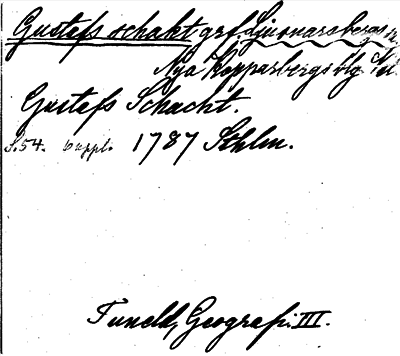 Gustafs schakt grf. Ljusnarsbergs sn
Nya Kopparbergs blg
Gustafs Schacht.
S. 54. Suppl. 1787 Sthlm.
Tuneld, Geografi. III.